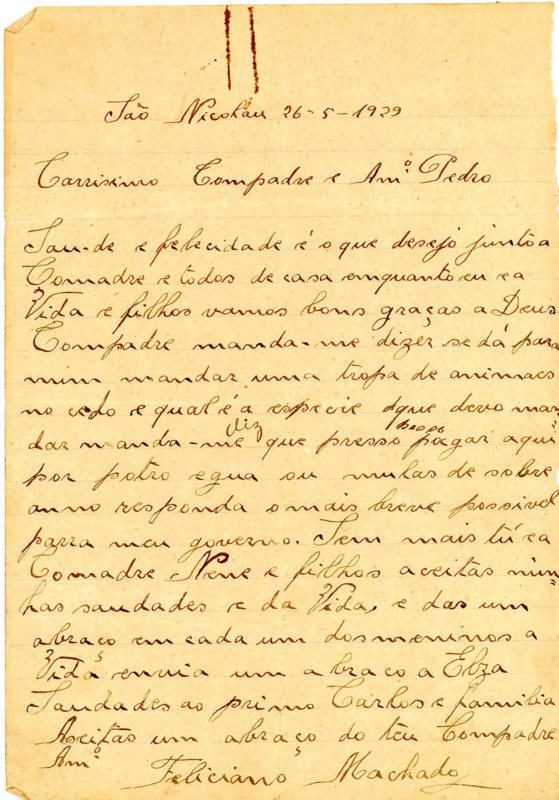 São Nicoláu 26-5-1929
Carrisimo Compadre e Am.º Pedro
Sau-de e felecidade é o que desejo junto a
Comadre e todos de casa emquanto eu e a
Vida e filhos vamos bons graças a Deus
Compadre manda-me dizêr se dá para
mim mandar uma tropa de animaes
no cedo e qual é a especie que devo man
dar manda-me diz que presso posso pagar aqui
por potro egua ou mulas de sobre
anno responda o mais breve possivel
parra meu governo. Sem mais tú e a
Comadre Nene e filhos aceitas min-
has saudades e da Vida, e das um
abraço em cada um dos meninos a
Vida envia um abraço a Elza
Saudades ao primo Carlos e familia
Aceitas um abraço do têu Compadre
Am.º
Feliciano Machado